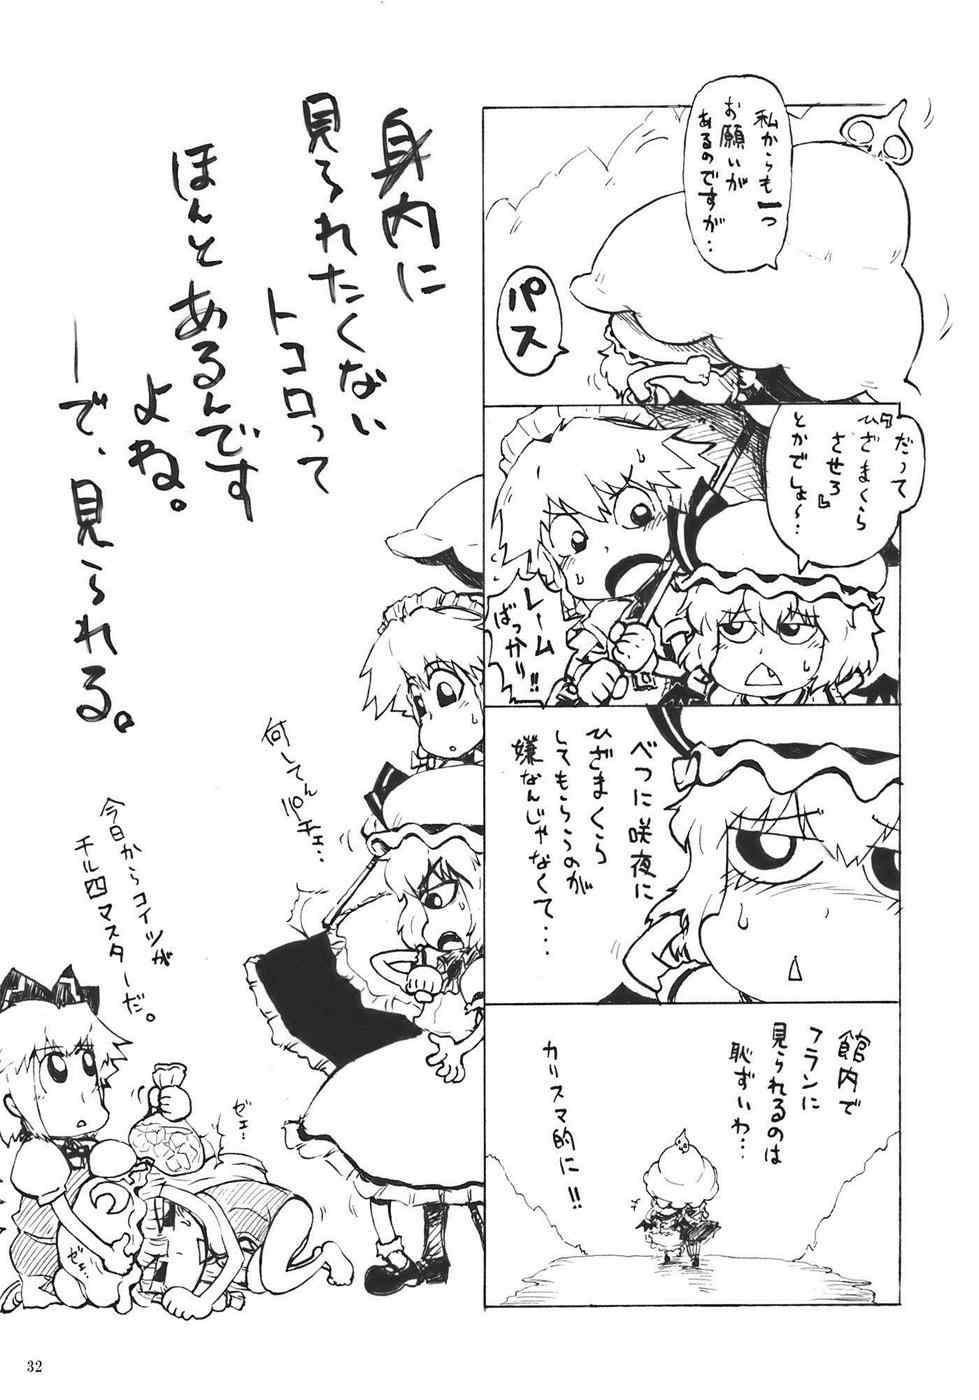 私からも一つ
お願いが
あるのですが…
パス
だって
『ひざまくら
させろ』
とかでしょ〜…
レーム
ばっか!!
べつに咲夜に
ひざまくら
してもらうのが
嫌なんじゃなくて・・・・
館内で
フランに
見られるのは
恥ずいわ…
カリスマ的に!!
身内に
見られたくない
トコロって
ほんとあるんです
よね。
―で、見られる。
何してん
パチェ…
今日からコイツが
チル四マスターだ。
ゼェ…
ゼェ…
32